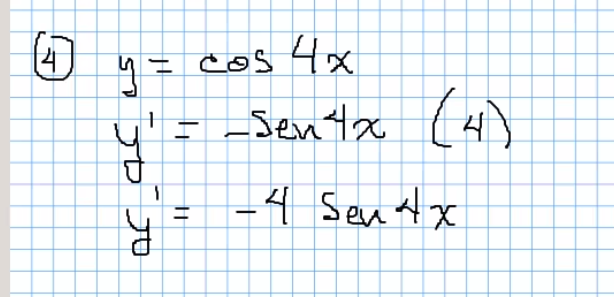 4 y = cos 4x
y' = -Sen4x (4)
y' = -4 Sen4x